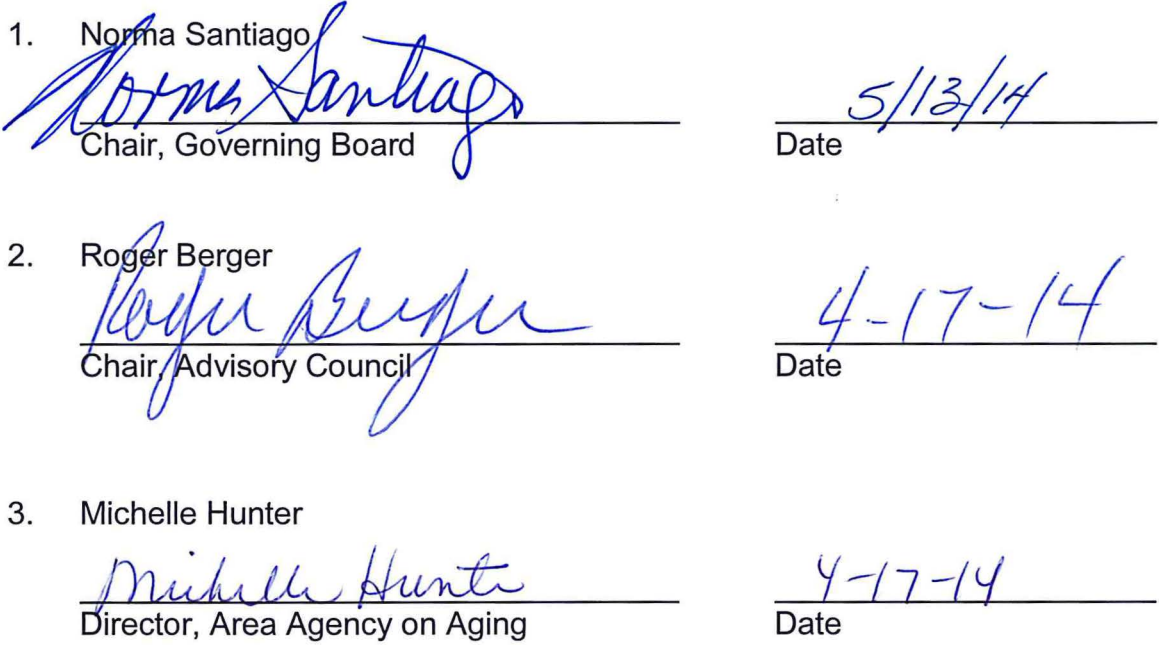 1. Norma Santiago
Norma Santiago 5/13/14
Chair, Governing Board Date
2. Roger Berger
Roger Berger 4-17-14
Chair, Advisory Council Date
3. Michelle Hunter
Michelle Hunter 4-17-14
Director, Area Agency on Aging Date